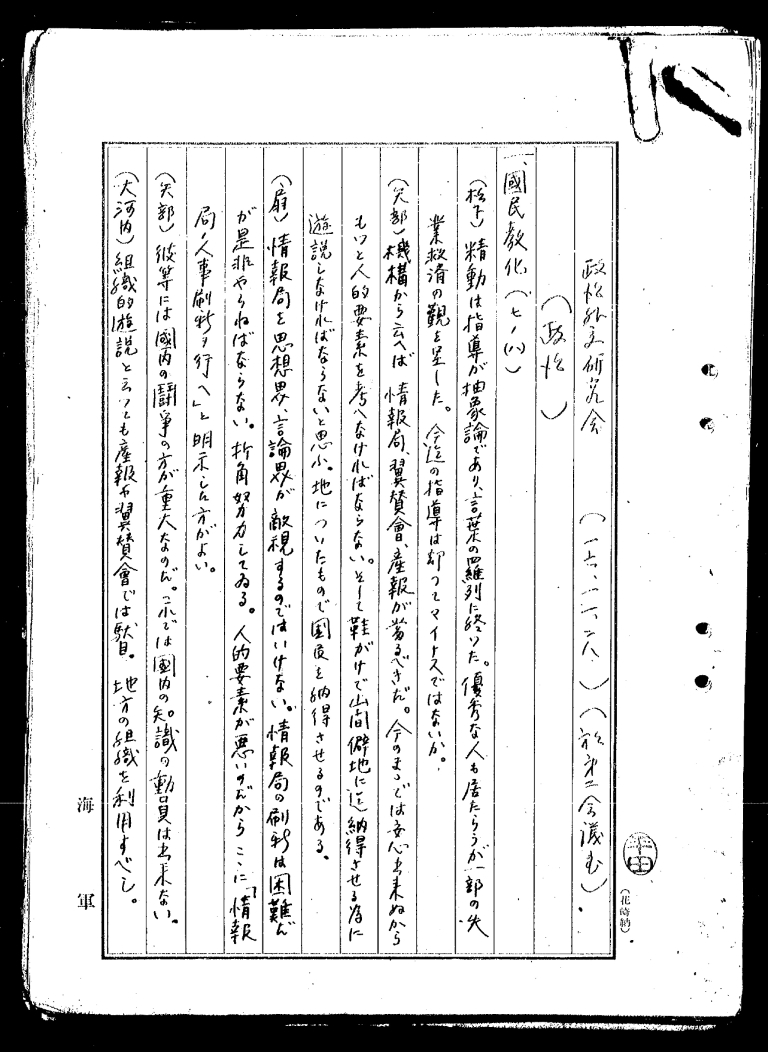 政治外交研究会 (一六、一一、二八) (於第二会議室)
(政治)
一、國民教化 (七ノ(八)
(松下) 精動は指導が抽象論であり、言葉の羅列に終った。優秀な人も居たらうが一部の失
業救済の観を呈した。今迄の指導は却つてマイナスではないか。
(矢部) 機構から云へば情報局、翼賛會、産報が當るべきだ。今のまゝでは安心出来ぬから
もつと人的要素を考へなければならない。そして鞋がけで山間僻地に迄納得させる為に
遊説しなければならないと思ふ。地についたもので国民を納得させるのである。
(扇) 情報局を思想界、言論界が敵視するのではいけない。情報局の刷新は困難だ
が是非やらねばならない。折角努力してゐる。人的要素が悪いのだからここに「情報
局ノ人事刷新ヲ行ヘ」と明示した方がよい。
(矢部) 彼等には國内の闘争の方が重大なのだ。これでは國内の知識の動員は出来ない。
(大河内) 組織的遊説と云つても産報や翼賛會では駄目。地方の組織を利用すべし。
海軍
(花崎納)